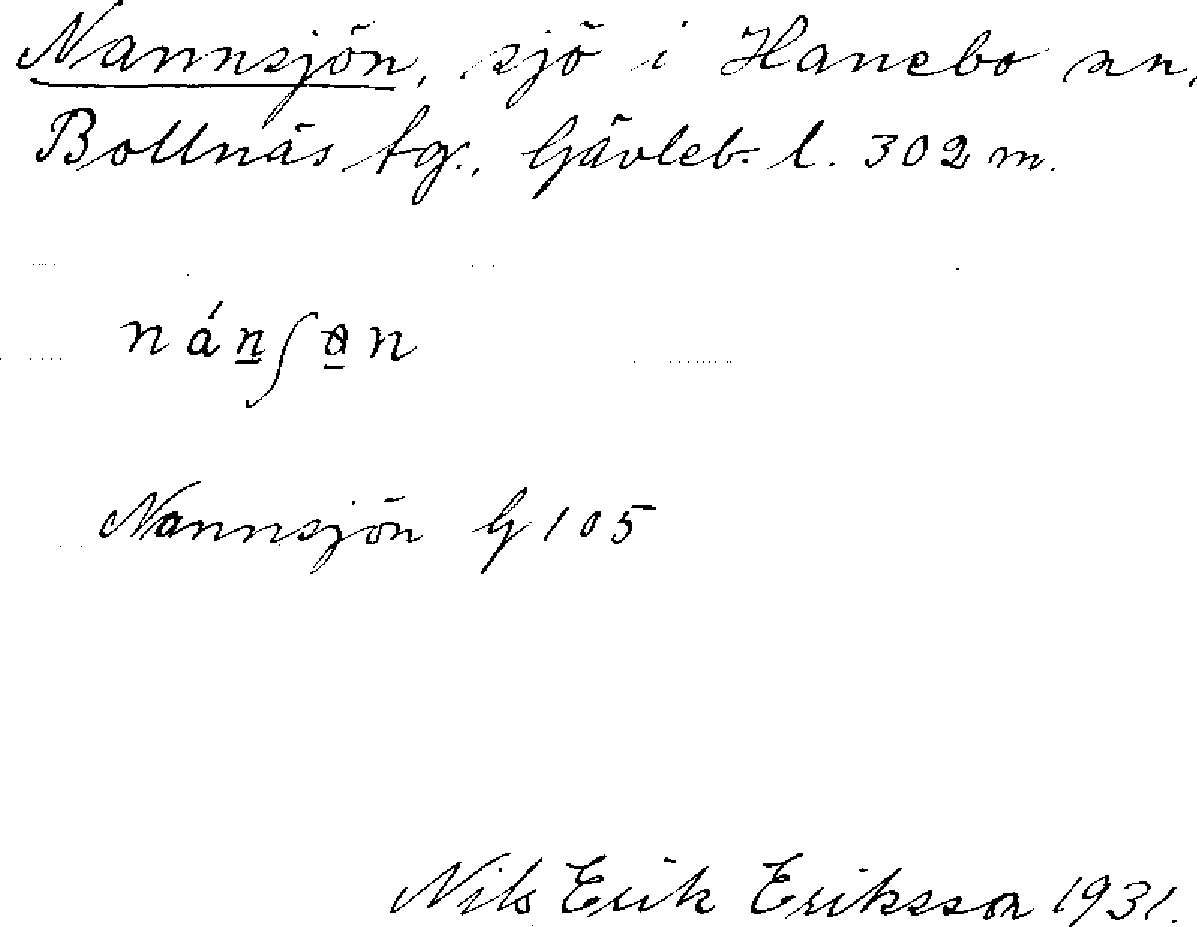 Nannsjön, sjö i Hanebo sn,
Bollnäs tg., Gävleb. l. 302 m.
nánʃɵn
Nannsjön G 105
Nils Erik Eriksson 1931.